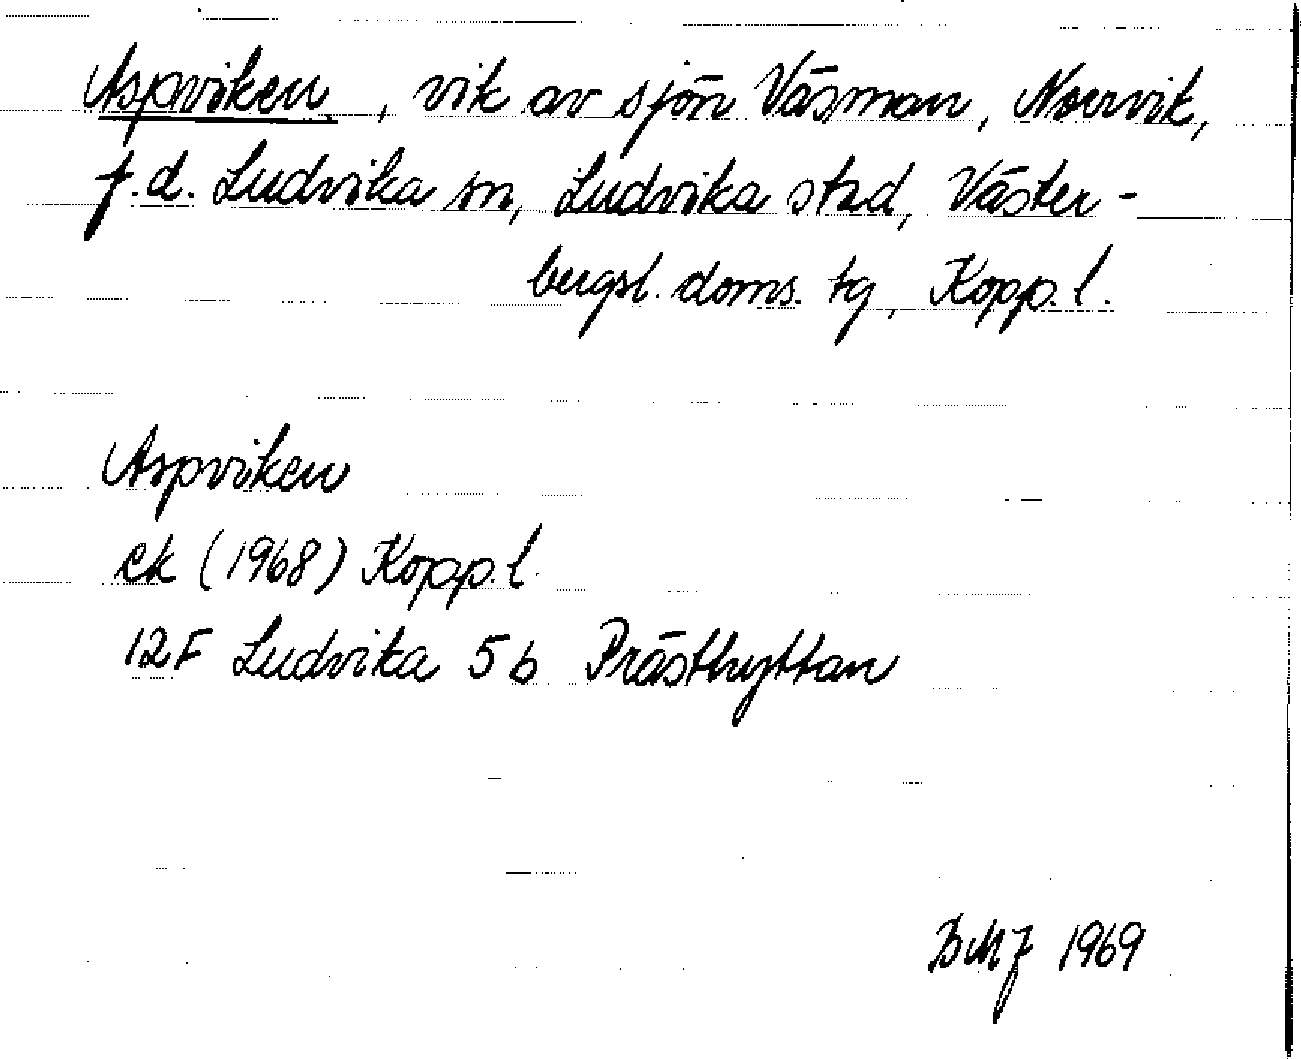 Aspviken, vik av sjön Väsman, Norrvik,
f.d. Ludvika sn, Ludvika stad, Väster-
bergsl. doms. tg, Kopp. l.
Aspviken
ek (1968) Kopp. l.
12F Ludvika 5 b Prästhyttan
BMJ 1969